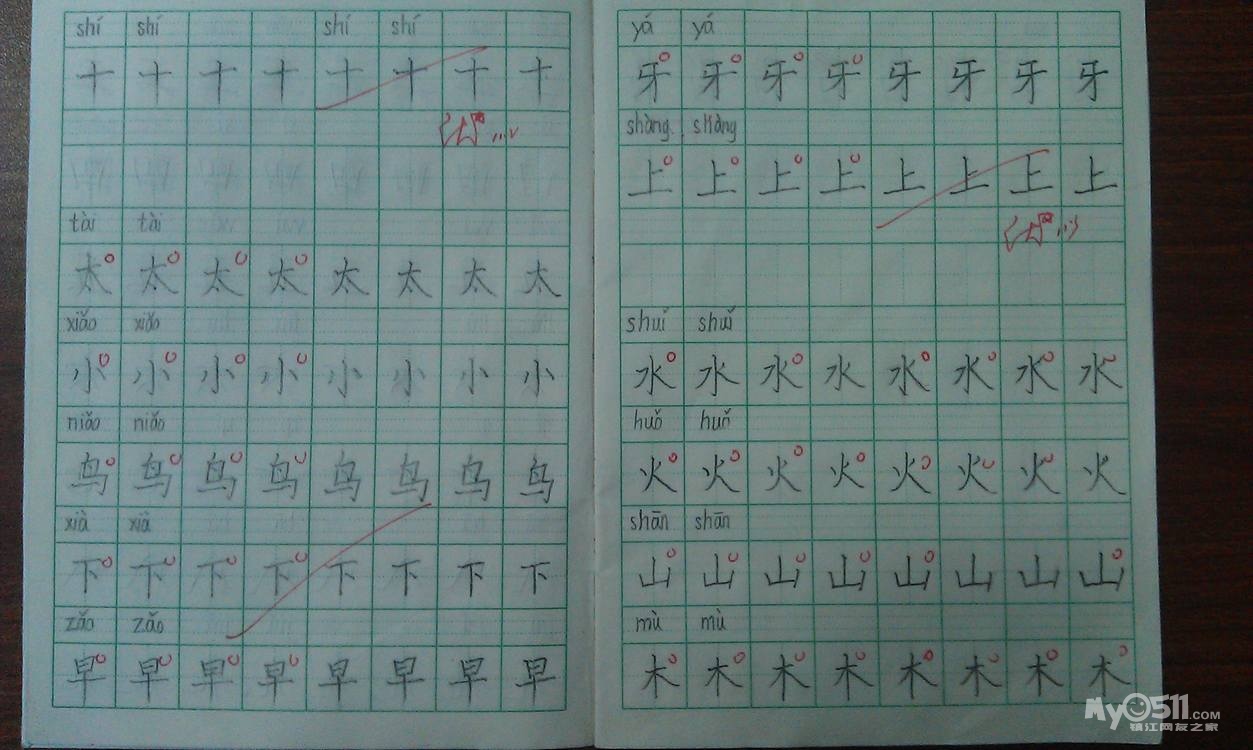 shí shí shí shí
十 十 十 十 十 十 十 十
tài tài
太 太 太 太 太 太 太 太
xiǎo xiǎo
小 小 小 小 小 小 小 小
niǎo niǎo
鸟 鸟 鸟 鸟 鸟 鸟 鸟 鸟
xià xià
下 下 下 下 下 下 下 下
zǎo zǎo
早 早 早 早 早 早 早 早
yá yá
牙 牙 牙 牙 牙 牙 牙 牙
shàng shàng
上 上 上 上 上 上 上 上
shuǐ shuǐ
水 水 水 水 水 水 水 水
huǒ huǒ
火 火 火 火 火 火 火 火
shān shān
山 山 山 山 山 山 山 山
mù mù
木 木 木 木 木 木 木 木
My0511.COM
镇江网友之家